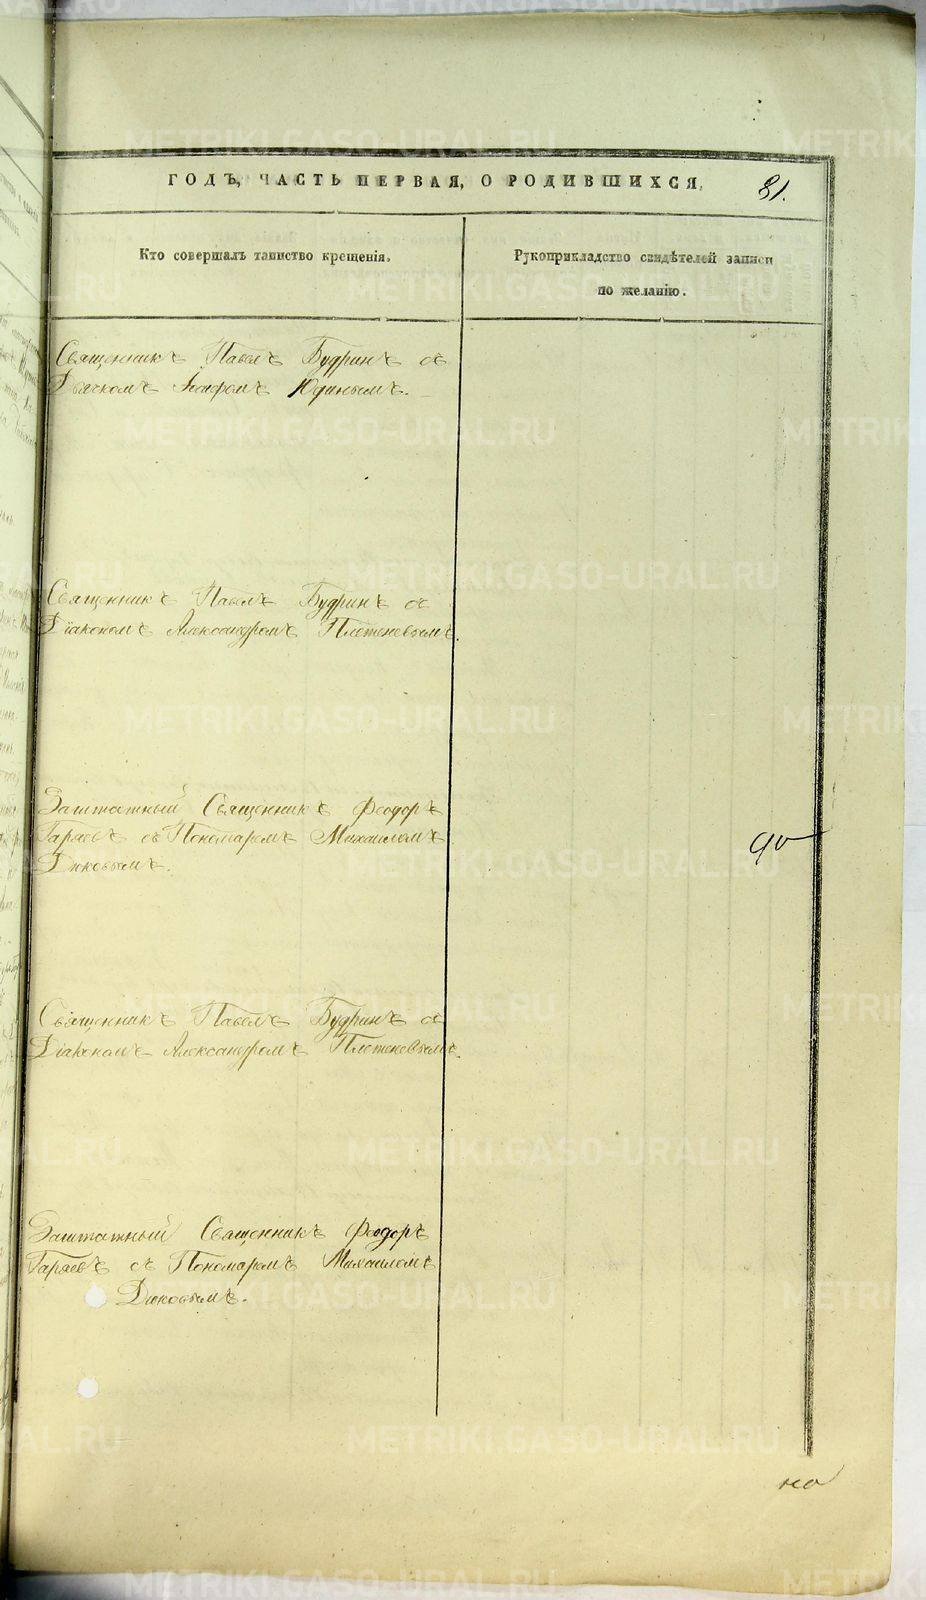 ГОДЪ, ЧАСТЬ ПЕРВАЯ, О РОДИВШИХСЯ,
81.
Кто совершалъ таинство крещенія.
Рукоприкладство свидѣтелей записи
по желанію.
Священникъ Павелъ Будринъ съ
Дьячкомъ Юдинымъ.
Священникъ Павелъ Будринъ съ
Діакономъ Александромъ Плетеневымъ.
Заштатный Священникъ Феодоръ
Гаряевъ съ Пономаремъ Михаиломъ
Дюковымъ.
Священникъ Павелъ Будринъ съ
Діакономъ Александромъ Плетеневымъ.
Заштатный Священникъ Феодоръ
Гаряевъ съ Пономаремъ Михаиломъ
Дюковымъ.
METRIKI.GASO-URAL.RU